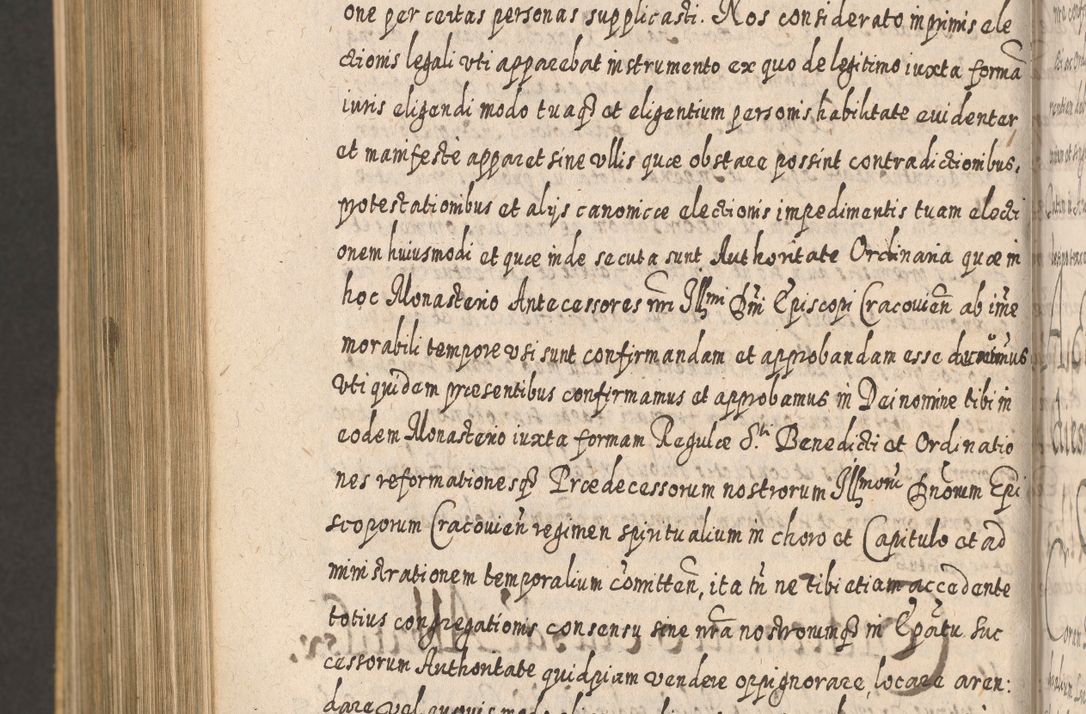 one per certas personas supplicasti. Nos considerato inprimis ele
ctionis legali uti apparebat instrumento ex quo de legitimo iuxta formã
iuris eligendi modo tuaq₃ et eligentium personis habilitate euidenter
et manifeste apparet sine ullis quæ obstare possint contradictionibus,
protestationibus et alijs canonicæ electionis impedimentis tuam electi
onem huiusmodi et quæ inde secuta sunt Authoritate Ordinaria quæ in
hoc Monasterio Antecessores nr̃i Ill^mi Dn̄i Episcopi Cracouien̄ ab im̄e
morabili tempore usi sunt confirmandam et approbandam esse duximus
Uti quidem præsentibus confirmamus et approbamus in Dei nomine tibi in
eodem Monasterio iuxta formam Regulæ S.^ti Benedicti et Ordinatio
nes reformationesq₃ Prædecessorum nostrorum Ill^morum Dn̄orum Epi
scoporum Cracouien̄ regimen spiritualium in choro et Capitulo et ad
ministrationem temporalium com̄itten̄, ita tn̄ ne tibi etiam accedente
totius congregationis consensu sine nr̃a nostrorumq₃ in Ep̄atu Suc
cessorum Authoritate quidpiam vendere oppignorare, locare aren:
dare vel quouis modo